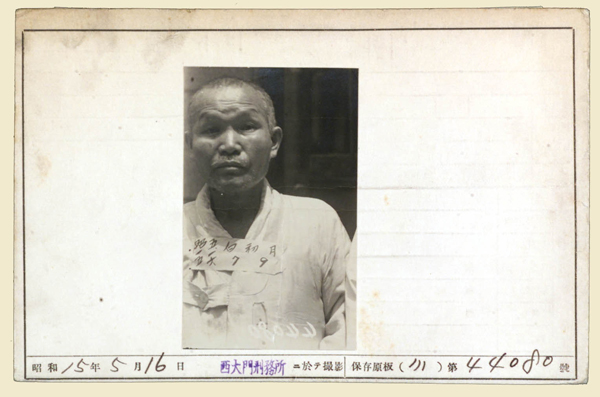 44080
昭和15年5月16日 西大門刑務所ニ於テ撮影 保存原板(小)第44080號